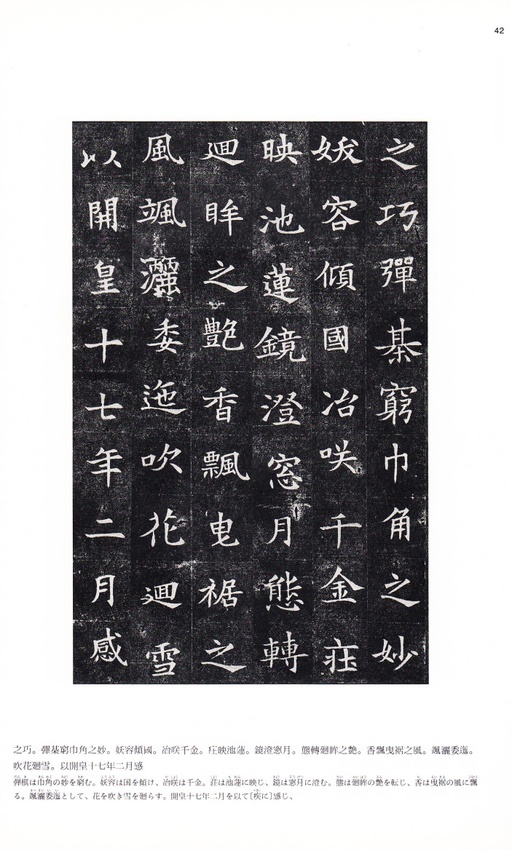 42
之巧彈棊窮巾角之妙
妖容傾國冶咲千金莊
映池蓮鏡澄窓月態轉
廻眸之艷香飄曳裾之
風颯灑委迤吹花廻雪
以開皇十七年二月感
之巧。彈棊窮巾角之妙。妖容傾國。冶咲千金。庄映池蓮。鏡澄窓月。態轉廻眸之艷。香飄曳裾之風。颯灑委迤。
吹花廻雪。以開皇十七年二月感
弾棋は巾角の妙を窮む。妖容は国を傾け、冶咲は千金。荘は池蓮に映じ、鏡は窓月に澄む。態は廻眸の艶を転じ、香は曳裾の風に飄
る。颯灑委迤として、花を吹き雪を廻らす。開皇十七年二月を以て〔疾に〕感じ、